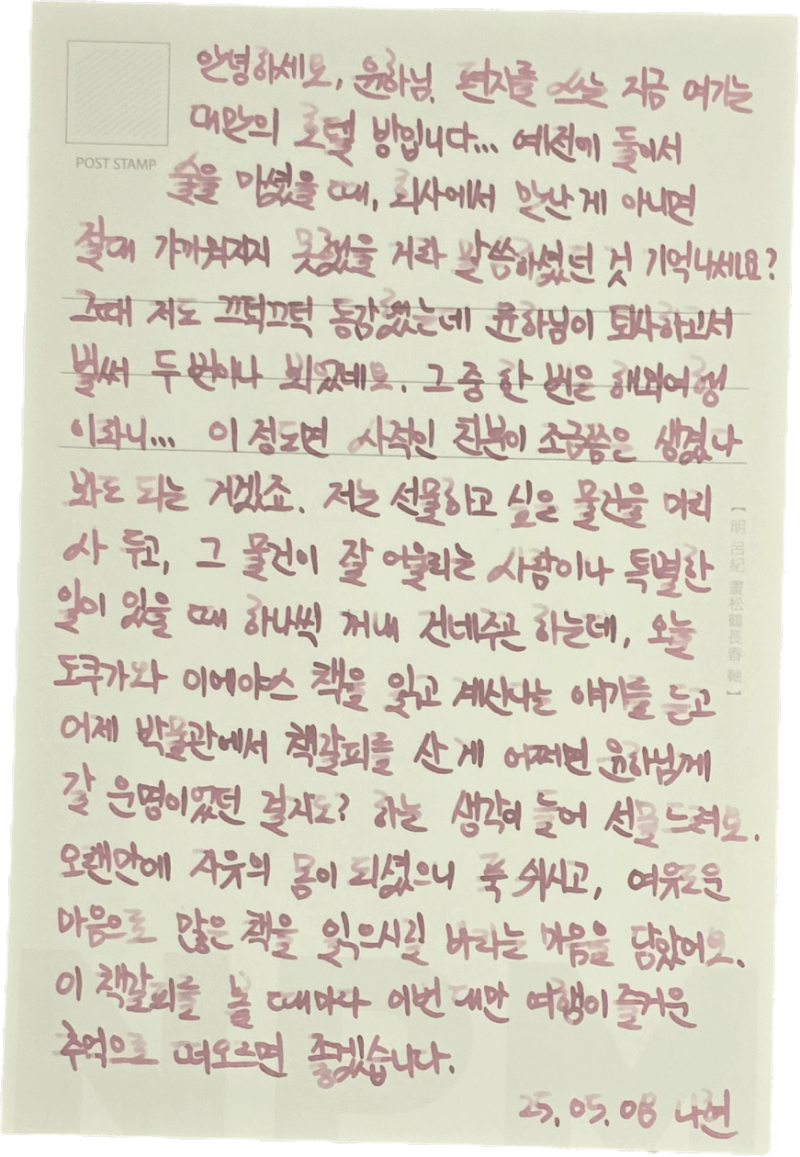 안녕하세요, 윤하님. 편지를 쓰는 지금 여기는
대만의 호텔 방입니다... 예전에 둘이서
POST STAMP
술을 마셨을 때, 회사에서 만난 게 아니면
절대 가까워지지 못했을 거라 말씀하셨던 것 기억나세요?
그때 저도 끄덕끄덕 동감했는데 윤하님이 퇴사하고서
벌써 두 번이나 뵈었네요. 그 중 한 번은 해외여행
이라니... 이 정도면 사적인 친분이 조금쯤은 생겼나
봐도 되는 거겠죠. 저는 선물하고 싶은 물건을 미리
사 두고, 그 물건이 잘 어울리는 사람이나 특별한
일이 있을 때 하나씩 꺼내 건네주곤 하는데, 오늘
도쿠가와 이에야스 책을 읽고 계신다는 얘기를 듣고
어제 박물관에서 책갈피를 산 게 어쩌면 윤하님께
갈 운명이었던 걸지도? 하는 생각이 들어 선물 드려요.
오랜만에 자유의 몸이 되셨으니 푹 쉬시고, 여유로운
마음으로 많은 책을 읽으시길 바라는 마음을 담았어요.
이 책갈피를 볼 때마다 이번 대만 여행이 즐거운
추억으로 떠오르면 좋겠습니다.
25.05.08 나현
【明 呂紀 畫松鶴長春 軸】
NPM